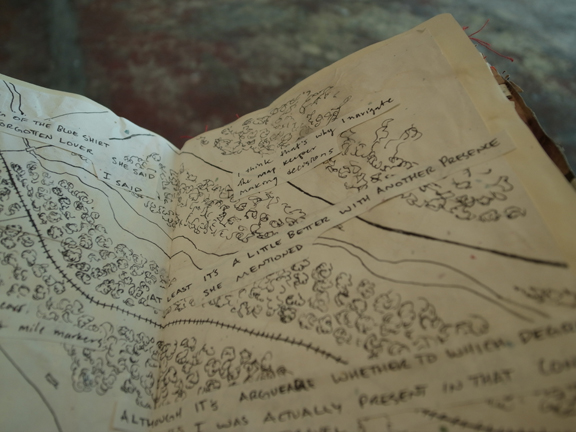 OF THE BLUE SHIRT
FORGOTTEN LOVER
SHE SAID
I SAID
mile markers
I think that's why I navigate
the map keeper
making decisions
AT LEAST IT'S A LITTLE BETTER WITH ANOTHER PRESENCE
SHE MENTIONED
ALTHOUGH IT'S ARGUEABLE WHETHER TO WHICH
I WAS ACTUALLY PRESENT IN THAT